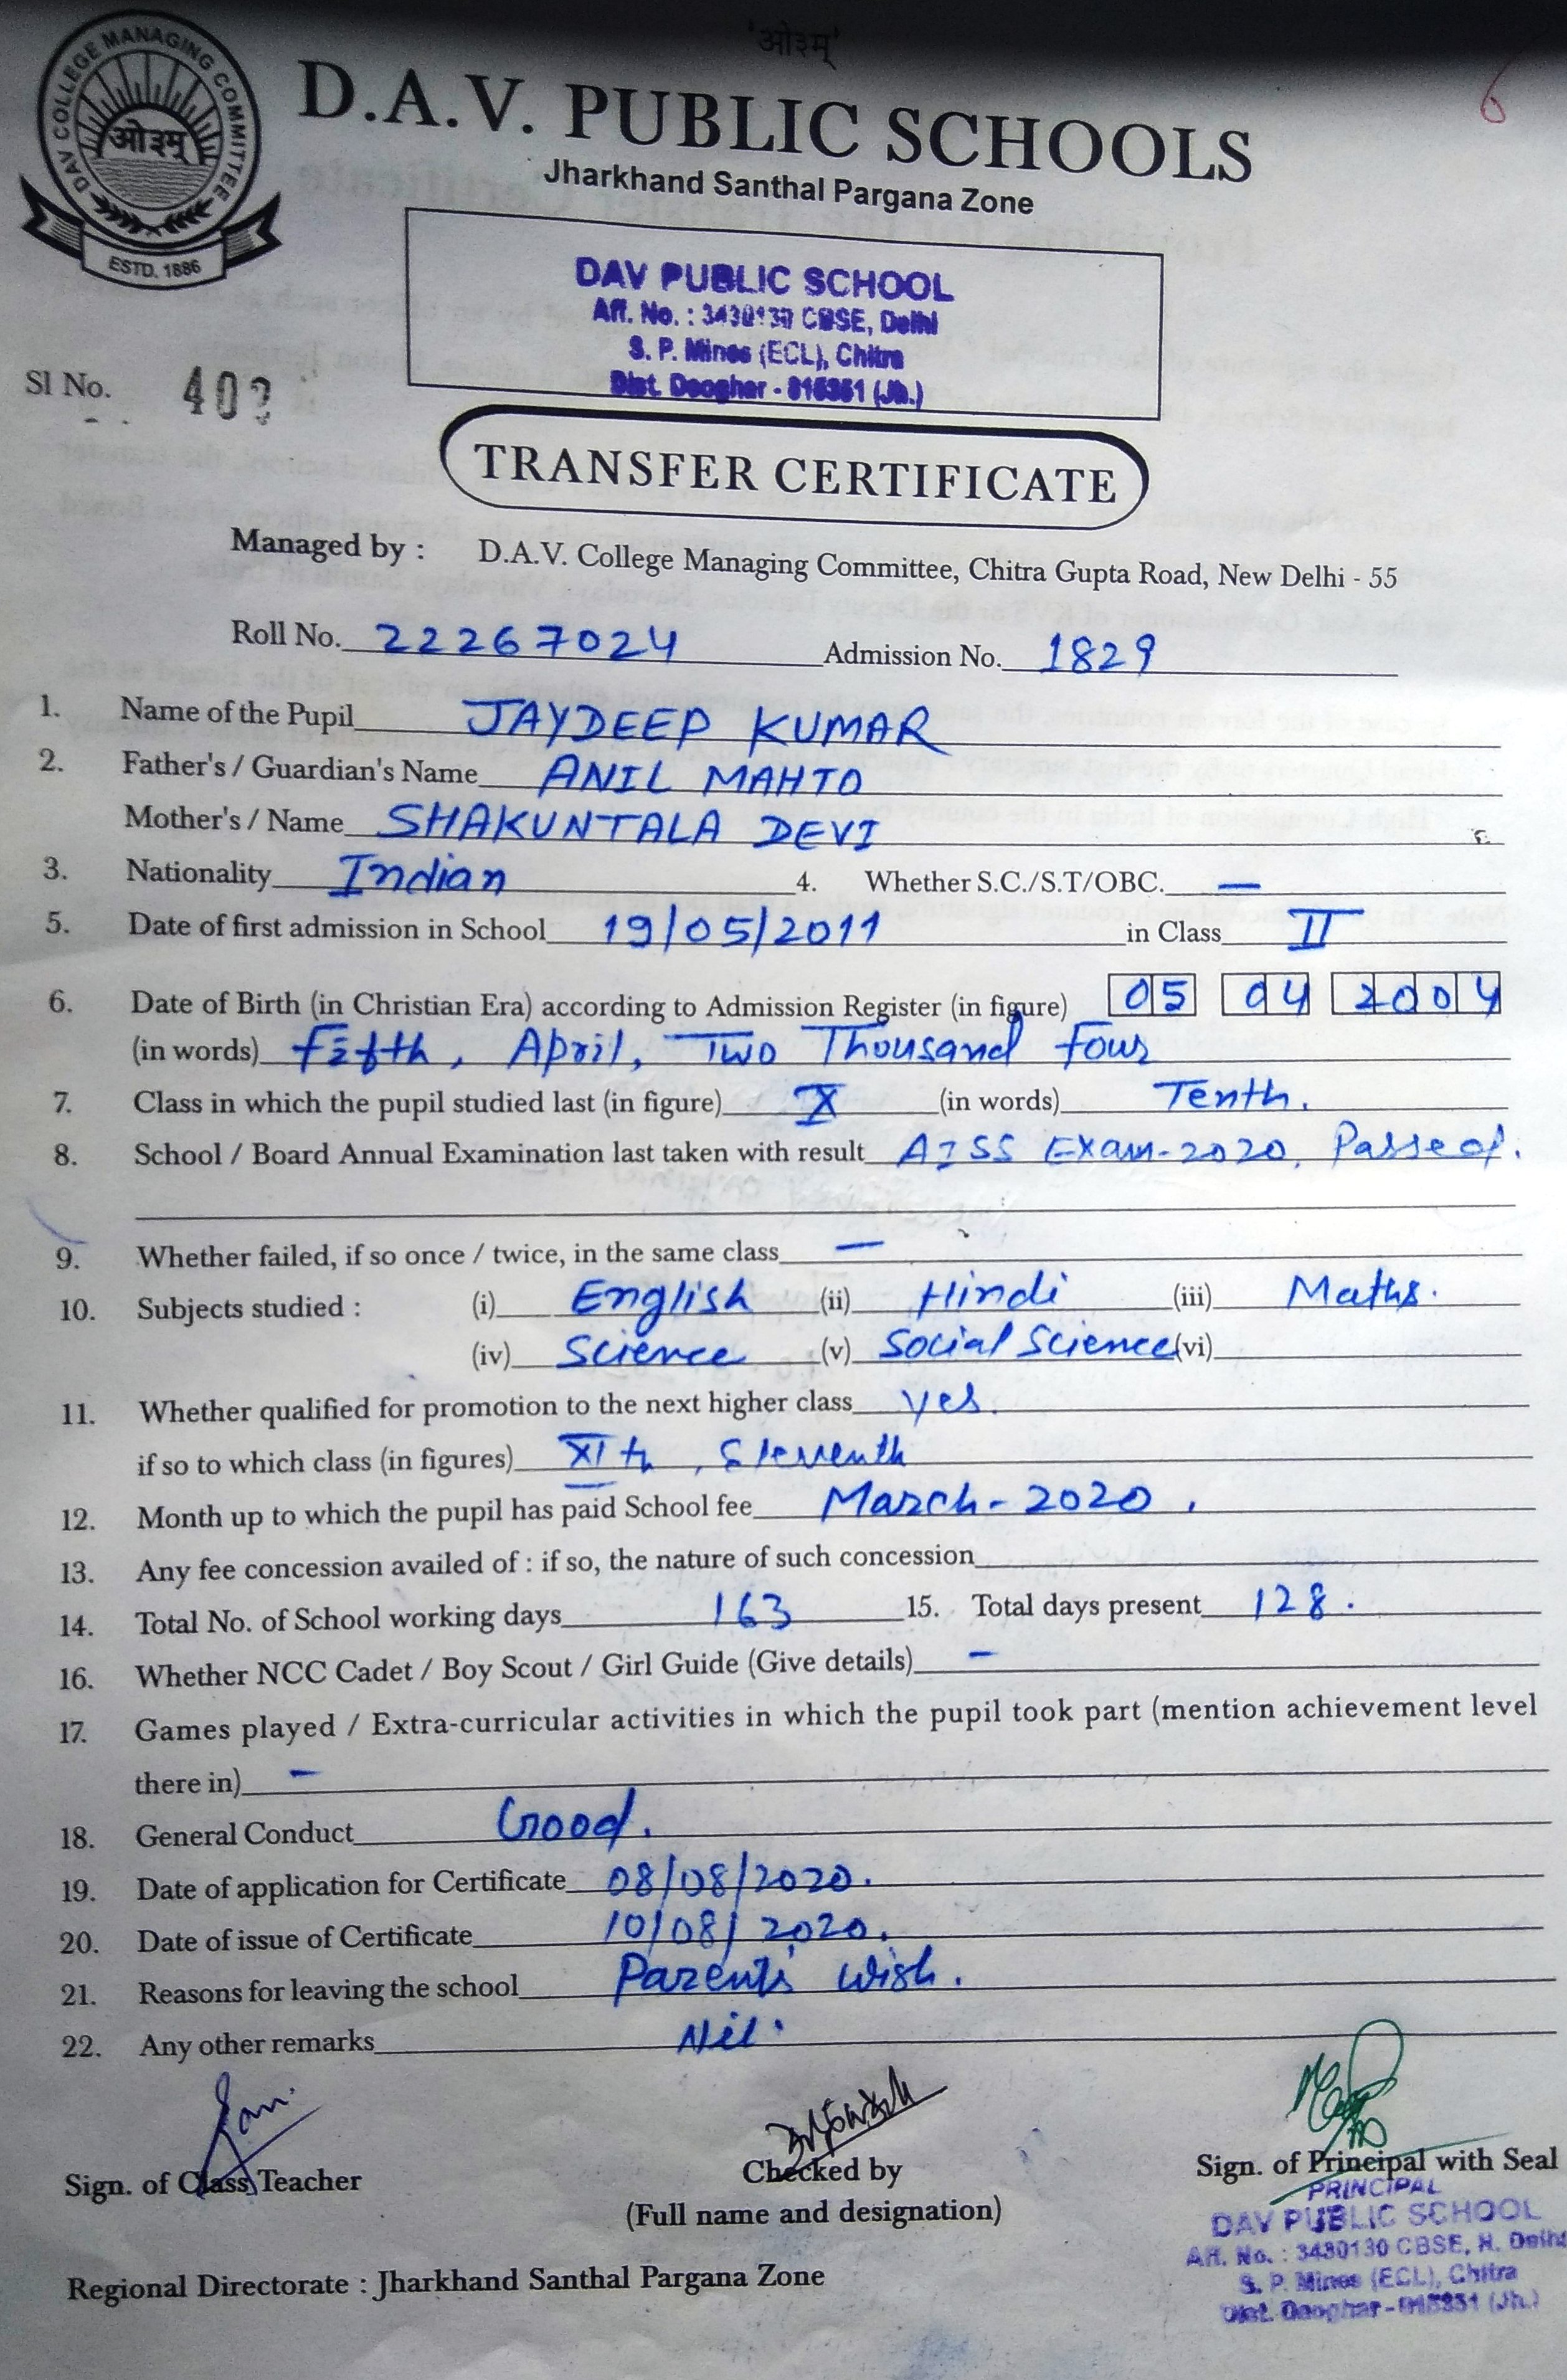 'ओ३म्'
DAV COLLEGE MANAGING COMMITTEE
ओ३म्
ESTD. 1886
6
D.A.V. PUBLIC SCHOOLS
Jharkhand Santhal Pargana Zone
DAV PUBLIC SCHOOL
Aff. No. : 3430130 CBSE, Delhi
S. P. Mines (ECL), Chitra
Dist. Deoghar - 815351 (Jh.)
Sl No. 402
TRANSFER CERTIFICATE
Managed by : D.A.V. College Managing Committee, Chitra Gupta Road, New Delhi - 55
Roll No. 22267024 Admission No. 1829
1. Name of the Pupil JAYDEEP KUMAR
2. Father's / Guardian's Name ANIL MAHTO
Mother's / Name SHAKUNTALA DEVI
3. Nationality Indian 4. Whether S.C./S.T/OBC. —
5. Date of first admission in School 19/05/2011 in Class II
6. Date of Birth (in Christian Era) according to Admission Register (in figure) 05 04 2004
(in words) Fifth, April, Two Thousand Four
7. Class in which the pupil studied last (in figure) X (in words) Tenth.
8. School / Board Annual Examination last taken with result AISS Exam-2020, Passed.
9. Whether failed, if so once / twice, in the same class —
10. Subjects studied : (i) English (ii) Hindi (iii) Maths.
(iv) Science (v) Social Science (vi)
11. Whether qualified for promotion to the next higher class yes.
if so to which class (in figures) XIth, Eleventh
12. Month up to which the pupil has paid School fee March-2020.
13. Any fee concession availed of : if so, the nature of such concession
14. Total No. of School working days 163 15. Total days present 128.
16. Whether NCC Cadet / Boy Scout / Girl Guide (Give details) —
17. Games played / Extra-curricular activities in which the pupil took part (mention achievement level
there in) —
18. General Conduct Good.
19. Date of application for Certificate 08/08/2020.
20. Date of issue of Certificate 10/08/2020.
21. Reasons for leaving the school Parents' wish.
22. Any other remarks Nil.
Sign. of Class Teacher
Checked by
(Full name and designation)
Sign. of Principal with Seal
PRINCIPAL
DAV PUBLIC SCHOOL
Aff. No. : 3430130 CBSE, N. Delhi
S. P. Mines (ECL), Chitra
Dist. Deoghar - 815351 (Jh.)
Regional Directorate : Jharkhand Santhal Pargana Zone